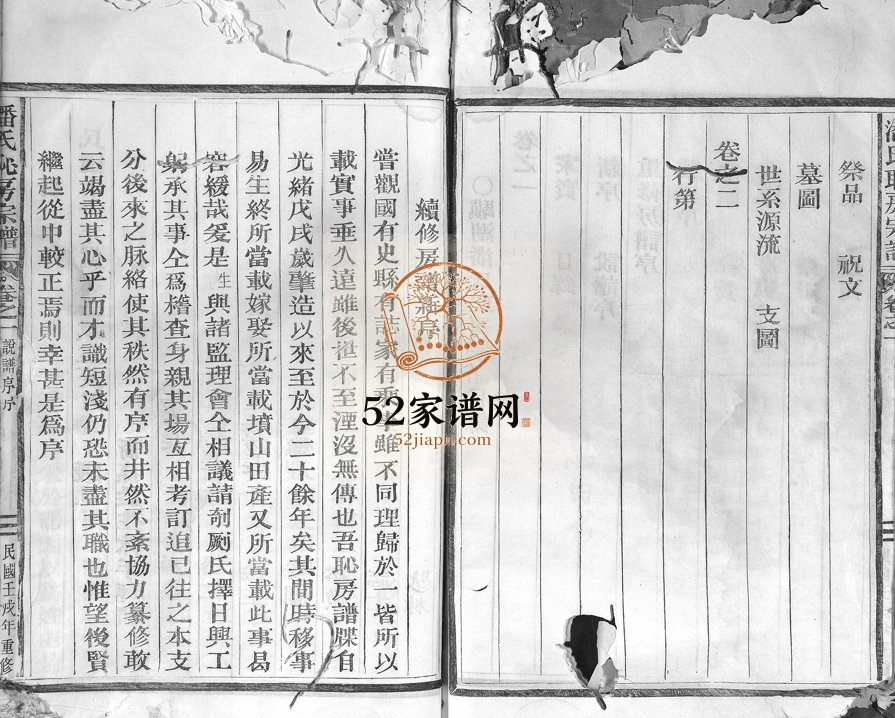 祭品 祝文
墓圖
世系源流 支圖
卷之二
行第
續修房譜新序
嘗觀國有史縣有誌家有乘雖不同理歸於一皆所以
載實事垂久遠雖後世不至湮沒無傳也吾恥房譜牒自
光緒戊戌歲肇造以來至於今二十餘年矣其間時移事
易生終所當載嫁娶所當載墳山田產又所當載此事曷
容緩哉爰是生興諸監理會仝相議請剞劂氏擇日興工
躬承其事仝為稽查身親其場互相考訂追已往之本支
分後來之脉絡使其秩然有序而井然不紊協力纂修敢
云竭盡其心乎而才識短淺仍恐未盡其職也惟望後賢
繼起從中較正焉則幸甚是為序
潘氏恥房宗譜 卷之一 說譜序序 民國壬戌年重修
52家谱网
52jiapu.com